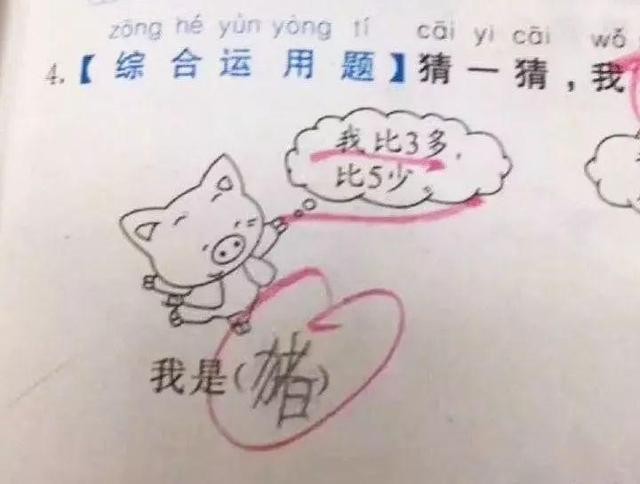 zōng hé yùn yòng tí cāi yi cāi wǒ
4.【综合运用题】猜一猜，我
我比3多，
比5少。
我是（猪）